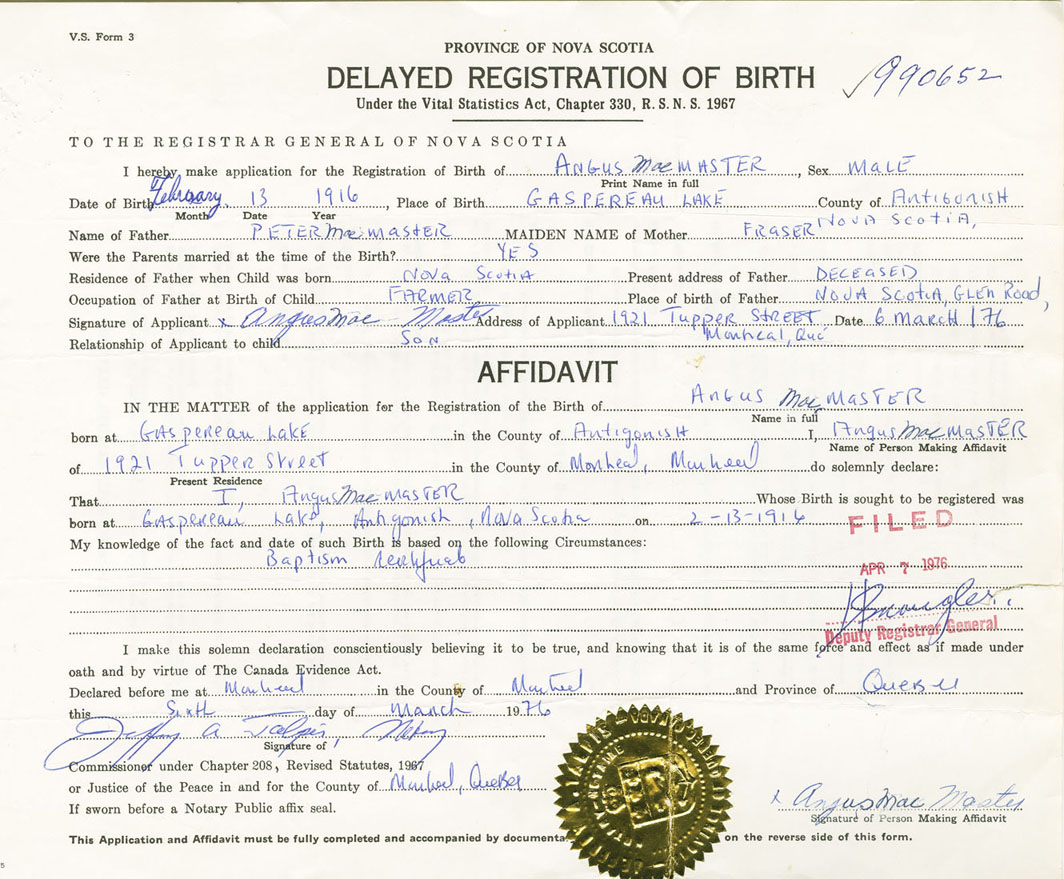 V.S. Form 3
PROVINCE OF NOVA SCOTIA
DELAYED REGISTRATION OF BIRTH
990652
Under the Vital Statistics Act, Chapter 330, R. S. N. S. 1967
TO THE REGISTRAR GENERAL OF NOVA SCOTIA
I hereby make application for the Registration of Birth of ANGUS Mac MASTER, Sex MALE
Print Name in full
Date of Birth February 13 1916, Place of Birth GASPEREAU LAKE County of ANTIGONISH
Month Date Year NOVA SCOTIA,
Name of Father PETER Mac MASTER MAIDEN NAME of Mother FRASER
Were the Parents married at the time of the Birth? YES
Residence of Father when Child was born NOVA SCOTIA Present address of Father DECEASED
Occupation of Father at Birth of Child FARMER Place of birth of Father NOVA SCOTIA, GLEN ROAD,
Signature of Applicant x Angus Mac Master Address of Applicant 1921 TUPPER STREET Date 6 MARCH /76
Relationship of Applicant to child SON Montreal, Que
AFFIDAVIT
IN THE MATTER of the application for the Registration of the Birth of ANGUS Mac MASTER
Name in full
born at GASPEREAU LAKE in the County of Antigonish I, Angus Mac MASTER
Name of Person Making Affidavit
of 1921 Tupper Street in the County of Montreal, Montreal do solemnly declare:
Present Residence
That I, Angus Mac MASTER Whose Birth is sought to be registered was
born at Gaspereau Lake, Antigonish, Nova Scotia on 2-13-1916
FILED
My knowledge of the fact and date of such Birth is based on the following Circumstances:
Baptism
APR 7 1976
Deputy Registrar General
I make this solemn declaration conscientiously believing it to be true, and knowing that it is of the same force and effect as if made under
oath and by virtue of The Canada Evidence Act.
Declared before me at Montreal in the County of Montreal and Province of QUEBEC
this Sixth day of March 1976
Signature of Notary
Commissioner under Chapter 208, Revised Statutes, 1967
or Justice of the Peace in and for the County of Montreal, Quebec
x Angus Mac Master
If sworn before a Notary Public affix seal.
Signature of Person Making Affidavit
This Application and Affidavit must be fully completed and accompanied by documenta on the reverse side of this form.